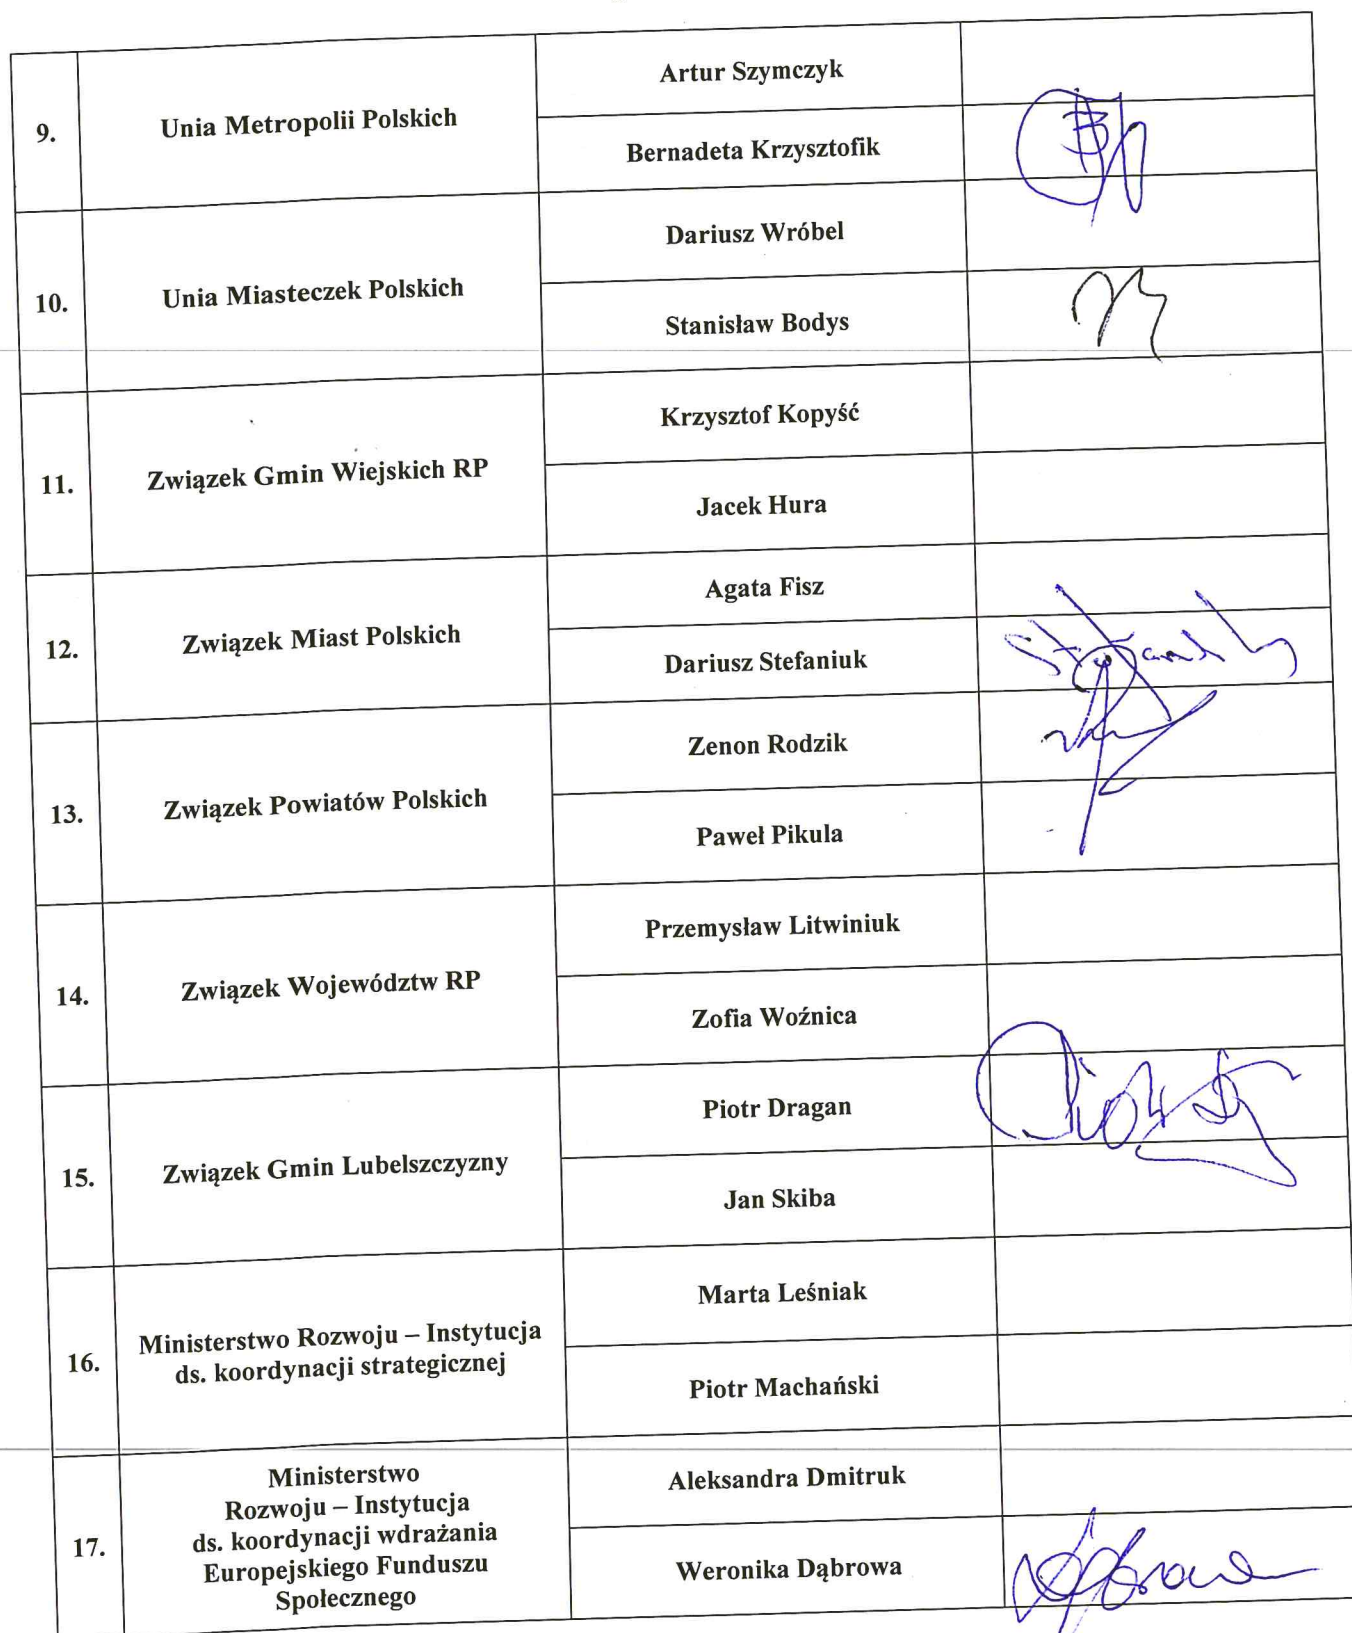 9.
Unia Metropolii Polskich
Artur Szymczyk
Bernadeta Krzysztofik
10.
Unia Miasteczek Polskich
Dariusz Wróbel
Stanisław Bodys
11.
Związek Gmin Wiejskich RP
Krzysztof Kopyść
Jacek Hura
12.
Związek Miast Polskich
Agata Fisz
Dariusz Stefaniuk
13.
Związek Powiatów Polskich
Zenon Rodzik
Paweł Pikula
14.
Związek Województw RP
Przemysław Litwiniuk
Zofia Woźnica
15.
Związek Gmin Lubelszczyzny
Piotr Dragan
Jan Skiba
16.
Ministerstwo Rozwoju – Instytucja
ds. koordynacji strategicznej
Marta Leśniak
Piotr Machański
17.
Ministerstwo
Rozwoju – Instytucja
ds. koordynacji wdrażania
Europejskiego Funduszu
Społecznego
Aleksandra Dmitruk
Weronika Dąbrowa